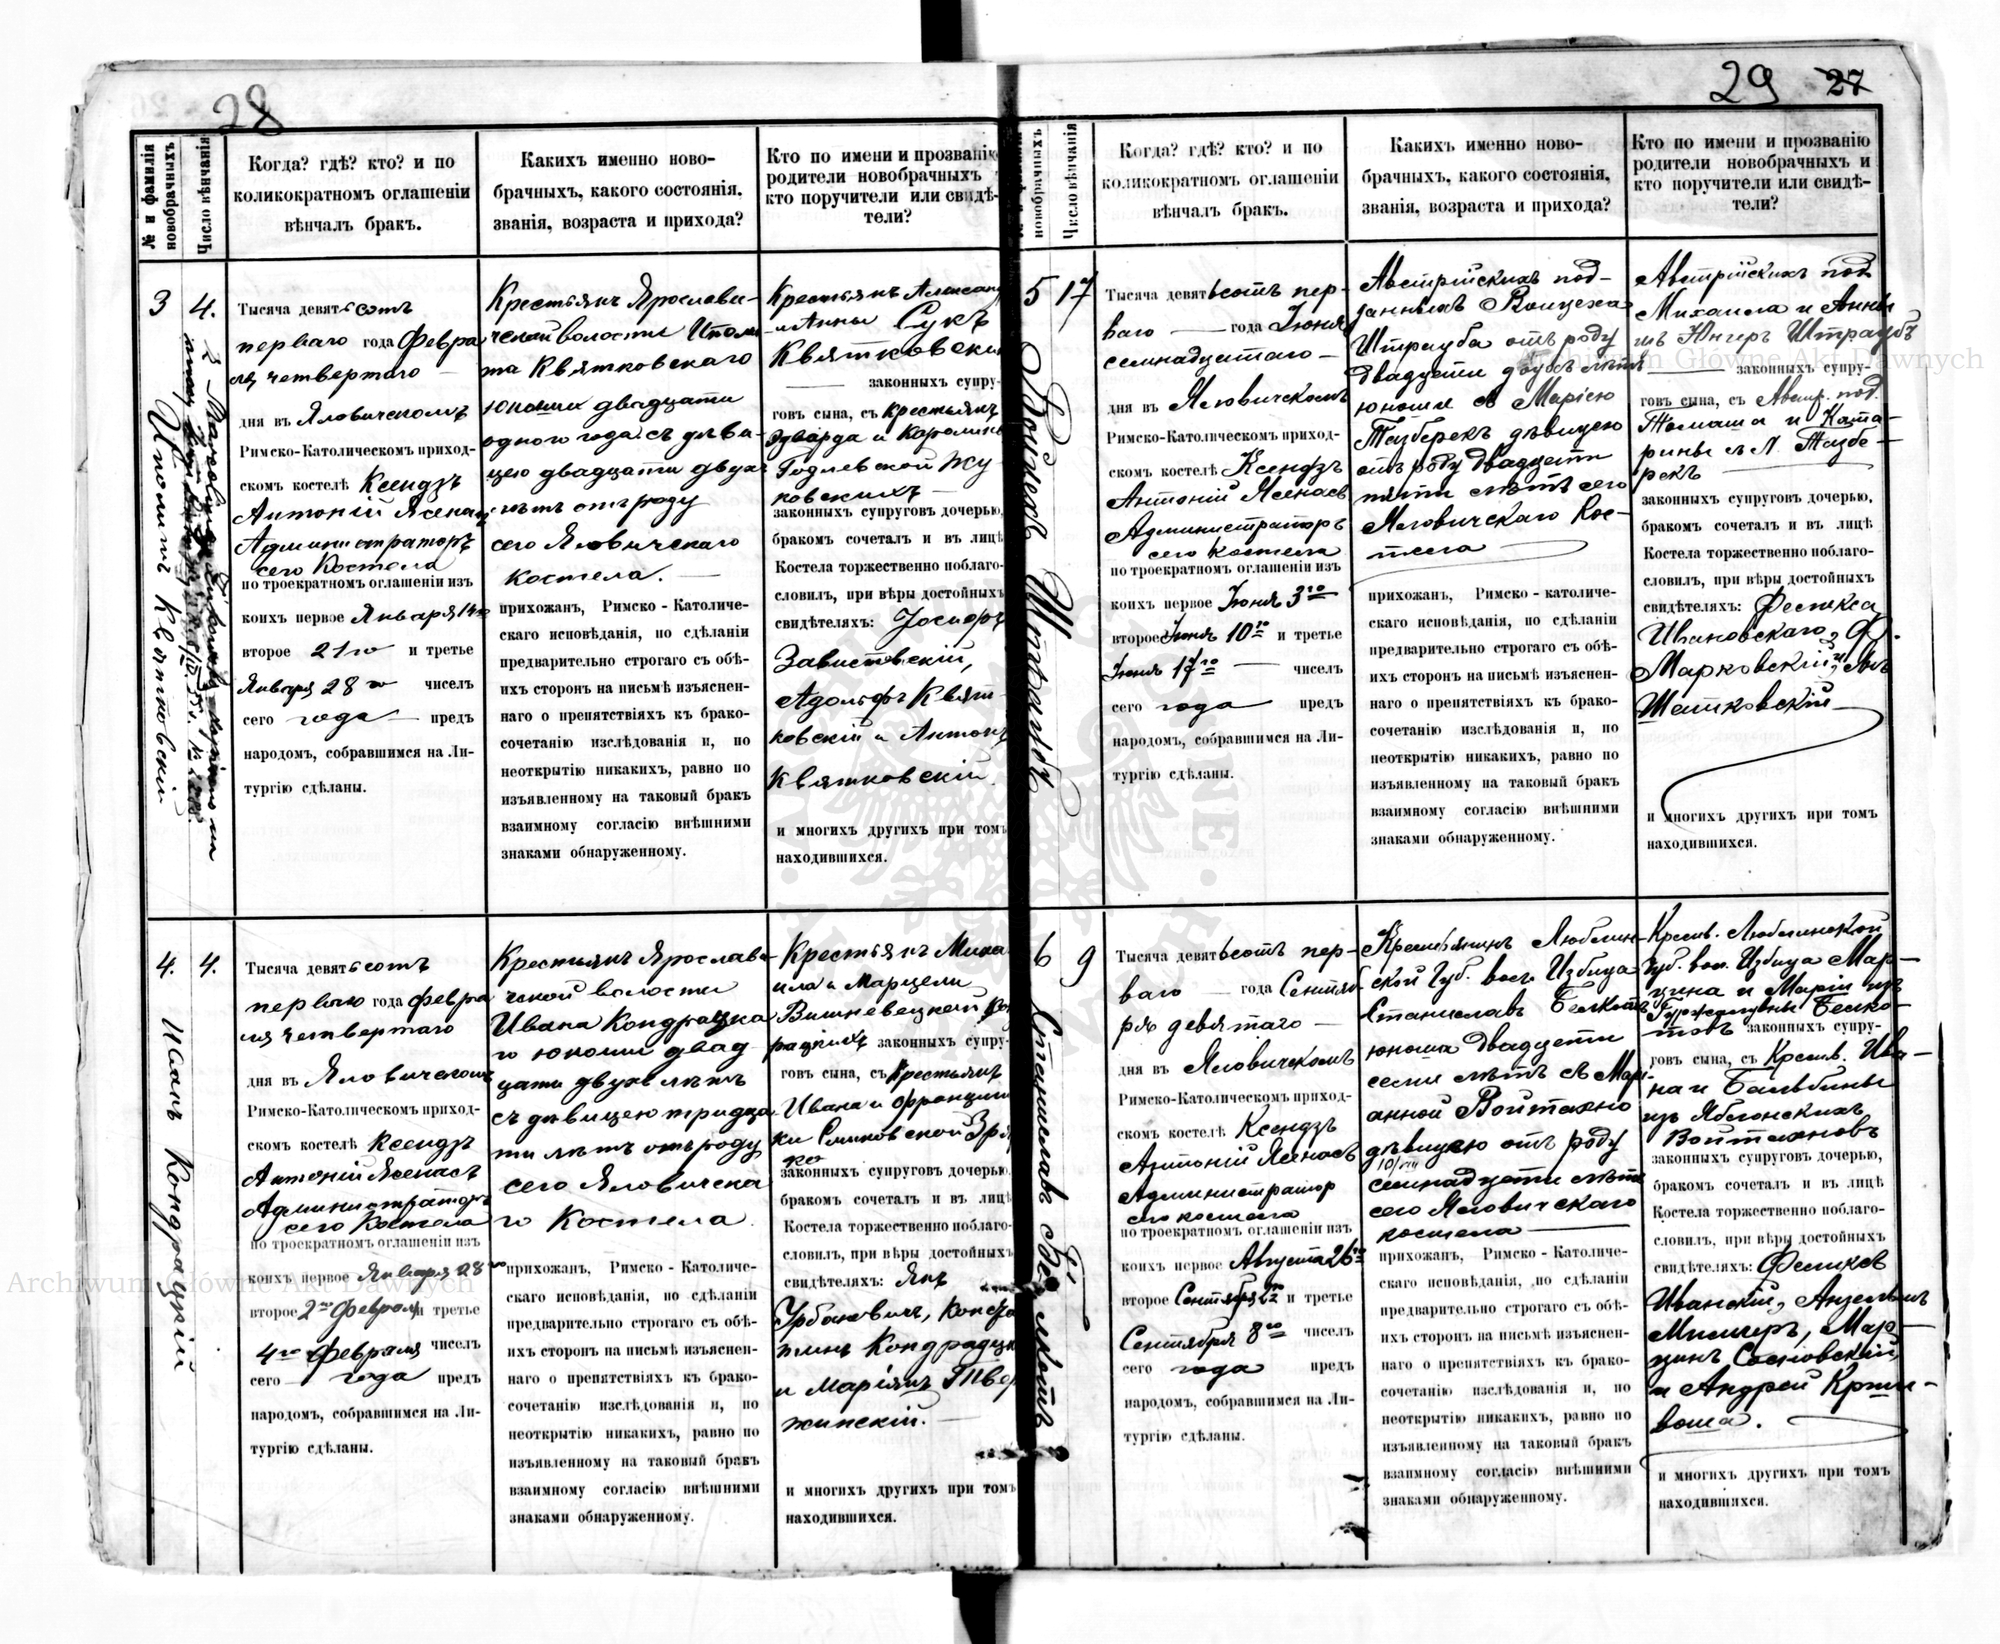 28
№ и фамилія новобрачныхъ
Число вѣнчанія
Когда? гдѣ? кто? и по
коликократномъ оглашеніи
вѣнчалъ бракъ.
Какихъ именно ново-
брачныхъ, какого состоянія,
званія, возраста и прихода?
Кто по имени и прозванію
родители новобрачныхъ и
кто поручители или свидѣ-
тели?
3
4.
Ипполитъ Квятковскій
Тысяча девятьсотъ
перваго года Февра
ля четвертаго
дня въ Яловичскомъ
Римско-Католическомъ приход-
скомъ костелѣ Ксендзъ
Антоній Ясенасъ
Администраторъ
сего Костела
по троекратномъ оглашеніи изъ
коихъ первое Января 14го
второе 21го и третье
Января 28го чиселъ
сего года предъ
народомъ, собравшимся на Ли-
тургію сдѣланы.
Крестьянъ Ярослави-
ческой волости Иполи
та Квятковскаго
юноши двадцати
одного года съ дѣви-
цею двадцати двухъ
лѣтъ отъ роду
сего Яловичскаго
костела.
прихожанъ, Римско-Католиче-
скаго исповѣданія, по сдѣланіи
предварительно строгаго съ обѣ-
ихъ сторонъ на письмѣ изъяснен-
наго о препятствіяхъ къ брако-
сочетанію изслѣдованія и, по
неоткрытію никакихъ, равно по
изъявленному на таковый бракъ
взаимному согласію внѣшними
знаками обнаруженному.
Крестьянъ Александ
и Анны Сукъ
Квятковски
законныхъ супру-
говъ сына, съ крестьянъ
Эдварда и Каролины
Годлевской Жу
ковскихъ
законныхъ супруговъ дочерью,
бракомъ сочеталъ и въ лицѣ
Костела торжественно поблаго-
словилъ, при вѣры достойныхъ
свидѣтеляхъ: Іосифъ
Завистовскій,
Адольфъ Квят
ковскій и Антонъ
Квятковскій.
и многихъ другихъ при томъ
находившихся.
4.
4.
Иванъ Кондрацкій
Тысяча девятьсотъ
перваго года Февра
ля четвертаго
дня въ Яловичскомъ
Римско-Католическомъ приход-
скомъ костелѣ Ксендзъ
Антоній Ясенасъ
Администраторъ
сего Костела
по троекратномъ оглашеніи изъ
коихъ первое Января 28го
второе 2го Февраля и третье
4го Февраля чиселъ
сего года предъ
народомъ, собравшимся на Ли-
тургію сдѣланы.
Крестьянъ Ярослави-
ческой волости
Ивана Кондрацка
го юноши двад
цати двухъ лѣтъ
съ дѣвицею тридца
ти лѣтъ отъ роду
сего Яловичска
го Костела.
прихожанъ, Римско-Католиче-
скаго исповѣданія, по сдѣланіи
предварительно строгаго съ обѣ-
ихъ сторонъ на письмѣ изъяснен-
наго о препятствіяхъ къ брако-
сочетанію изслѣдованія и, по
неоткрытію никакихъ, равно по
изъявленному на таковый бракъ
взаимному согласію внѣшними
знаками обнаруженному.
Крестьянъ Миха
ила и Марцели
Вишневецкой Кон
рацкихъ законныхъ супру-
говъ сына, съ Крестьянъ
Ивана и Францишки
законныхъ супруговъ дочерью,
бракомъ сочеталъ и въ лицѣ
Костела торжественно поблаго-
словилъ, при вѣры достойныхъ
свидѣтеляхъ: Янъ
Урбановичъ, Конста
нтинъ Кондрацк
и Маріянъ Твер
жинскій.
и многихъ другихъ при томъ
находившихся.
29 27
новобрачныхъ
Число вѣнчанія
Когда? гдѣ? кто? и по
коликократномъ оглашеніи
вѣнчалъ бракъ.
Какихъ именно ново-
брачныхъ, какого состоянія,
званія, возраста и прихода?
Кто по имени и прозванію
родители новобрачныхъ и
кто поручители или свидѣ-
тели?
5
17
Войцехъ Штраубъ
Тысяча девятьсотъ пер-
ваго года Іюня
семнадцатаго
дня въ Яловичскомъ
Римско-Католическомъ приход-
скомъ костелѣ Ксендзъ
Антоній Ясенасъ
Администраторъ
сего Костела
по троекратномъ оглашеніи изъ
коихъ первое Іюня 3го
второе Іюня 10го и третье
Іюня 17го чиселъ
сего года предъ
народомъ, собравшимся на Ли-
тургію сдѣланы.
Австрійскихъ под-
данныхъ Войцеха
Штрауба отъ роду
двадцети двухъ лѣтъ
юноши съ Маріею
Тазберекъ дѣвицею
отъ роду двадцети
пяти лѣтъ сего
Яловичскаго Кос-
тела
прихожанъ, Римско-католиче-
скаго исповѣданія, по сдѣланіи
предварительно строгаго съ обѣ-
ихъ сторонъ на письмѣ изъяснен-
наго о препятствіяхъ къ брако-
сочетанію изслѣдованія и, по
неоткрытію никакихъ, равно по
изъявленному на таковый бракъ
взаимному согласію внѣшними
знаками обнаруженному.
Австрійскихъ под
Михаила и Анны
изъ Юнгеръ Штраубъ
законныхъ супру-
говъ сына, съ Австр. под.
Томаша и Ката-
рины Тазбе-
рекъ
законныхъ супруговъ дочерью,
бракомъ сочеталъ и въ лицѣ
Костела торжественно поблаго-
словилъ, при вѣры достойныхъ
свидѣтеляхъ: Феликса
Ивановскаго, Ф.
Марковскій,
Шатковскій
и многихъ другихъ при томъ
находившихся.
6
9
Станиславъ
Тысяча девятьсотъ пер-
ваго года Сентяб
ря девятаго
дня въ Яловичскомъ
Римско-Католическомъ приход-
скомъ костелѣ Ксендзъ
Антоній Ясенасъ
Администратор
сего костела
по троекратномъ оглашеніи изъ
коихъ первое Августа 26го
второе Сентября 2го и третье
Сентября 8го чиселъ
сего года предъ
народомъ, собравшимся на Ли-
тургію сдѣланы.
Крестьянинъ Люблин-
ской Губ. вол. Избица
Станиславъ
юноша двадцети
семи лѣтъ съ Марі-
анной Войтахно
дѣвицею отъ роду
семнадцети лѣтъ
сего Яловичскаго
костела
прихожанъ, Римско-Католиче-
скаго исповѣданія, по сдѣланіи
предварительно строгаго съ обѣ-
ихъ сторонъ на письмѣ изъяснен-
наго о препятствіяхъ къ брако-
сочетанію изслѣдованія и, по
неоткрытію никакихъ, равно по
изъявленному на таковый бракъ
взаимному согласію внѣшними
знаками обнаруженному.
Крест. Люблинской
Губ. вол. Избица Мар-
цина и Маріи изъ
законныхъ супру-
говъ сына, съ Крест. Ива-
на и Бальбины
изъ Яблонскихъ
Войтахновъ
законныхъ супруговъ дочерью,
бракомъ сочеталъ и въ лицѣ
Костела торжественно поблаго-
словилъ, при вѣры достойныхъ
свидѣтеляхъ: Феликсъ
Иванскій, Ансельмъ
Миллеръ, Мар-
цинъ Сосновскій,
и Андрей Кржи-
воша.
и многихъ другихъ при томъ
находившихся.
Archiwum Główne Akt Dawnych
Archiwum Główne Akt Dawnych